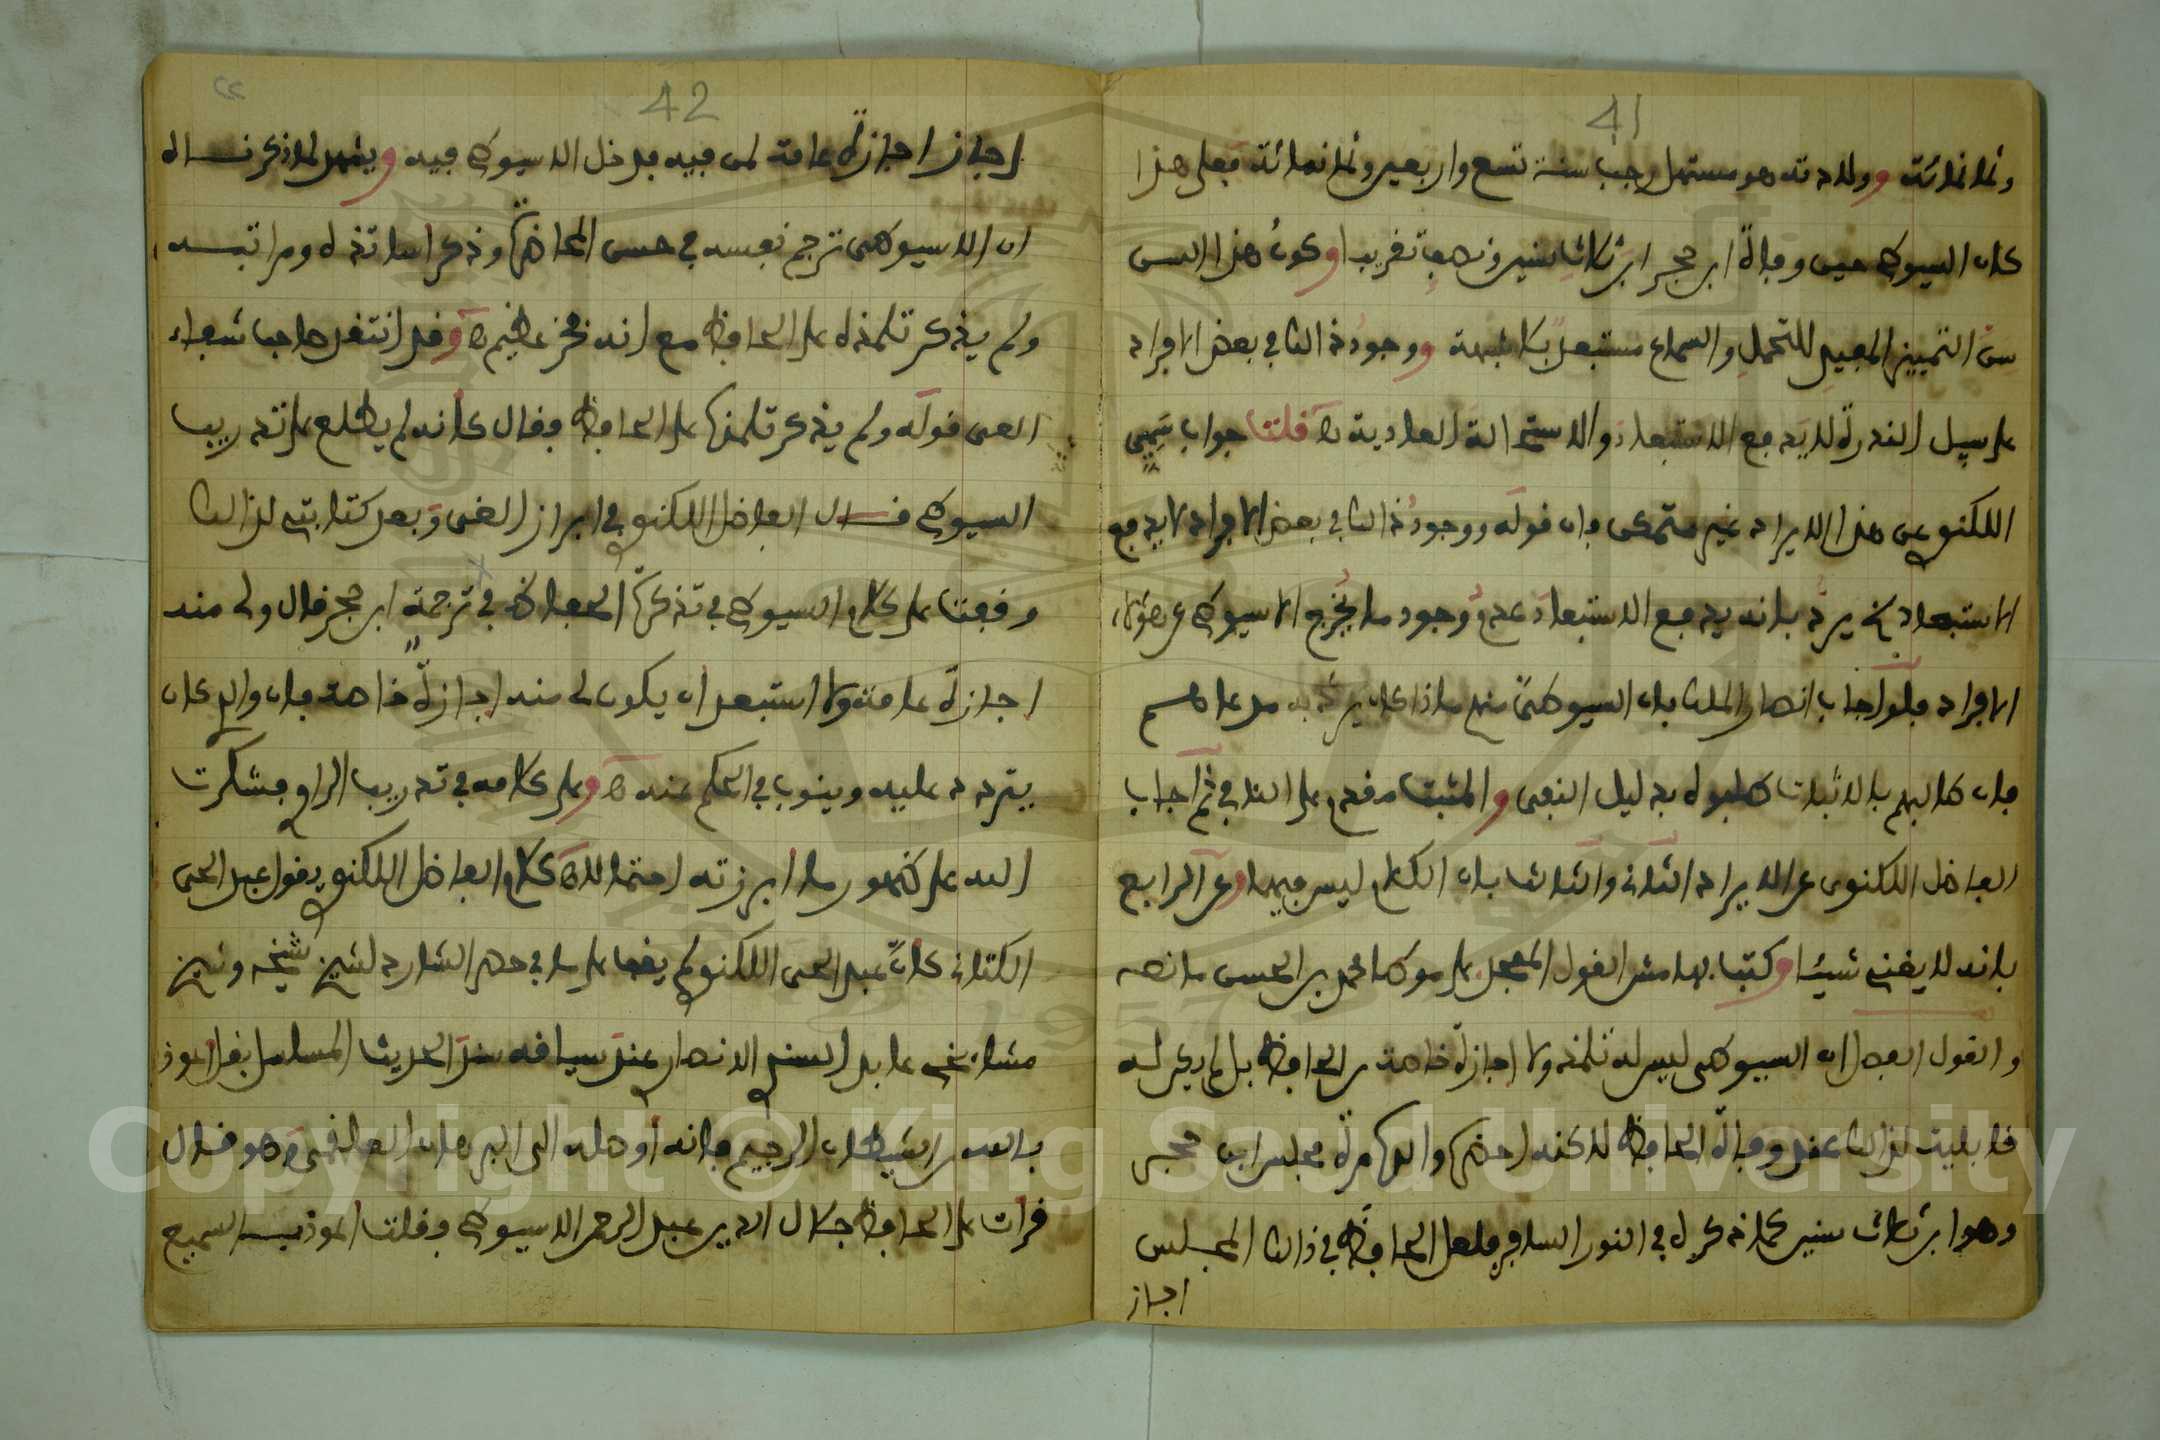 41
وثمانمائة وولادته هو مستهل رجب سنة تسع واربعين وثمانمائة فعلى هذا
كان السيوطي حين وفاة ابن حجر ابن ثلاث سنين ونصف تقريبا وكون هذا السن
سن التمييز المفيد للتحمل والسماع مستبعد بلا شبهة ووجود ذالك في بعض الافراد
على سبيل الندرة لا يدفع الاستبعاد والاستحالة العادية ه قلت جواب سَمِيي
اللكنوي عن هذا الايراد غير متمكن فان قوله ووجود ذالك في بعض الافراد لا يدفع
الاستبعاد يرد بانه يدفع الاستبعاد عدم وجود ما يخرج الاسيوطي عن هؤلاء
الافراد فلو اجاب انصار الملك بان السيوطي منهم ماذا كان يرد به مدعاهم
فان طالبهم بالاثبات طلبوه بدليل النفي والمثبت مقدم على النافي ثم اجاب
الفاضل اللكنوي عن الايراد الثاني والثالث بان الكلام ليس فيهما وعن الرابع
بانه لا يغني شيئا وكتب بهامش الفول الممجد على موطا محمد بن الحسن ما نصه
والقول الفصل ان السيوطي ليس له تلمذ ولا اجازة خاصة من الحافظ بل لم يكن له
قابلية لذالك عند وفاة الحافظ لاكنه احضره والده مرة مجلس ابن حجر
وهو ابن ثلاث سنين كما ذكره في النور السافر فلعل الحافظ في ذالك المجلس
اجاز
42
اجاز اجازة عامة لمن فيه فدخل السيوطي فيه ويشهد لما ذكرنــاه
ان السيوطي ترجم نفسه في حسن المحاضرة وذكر اساتذه ومراتبــه
ولم يذكر تلمذه على الحافظ مع انه فخر عظيم ه وقد انتقد صاحب شفاء
العي قوله ولم يذكر تلمذه على الحافظ وقال كانه لم يطلع على تدريب
السيوطي قــال الفاضل اللكنوي في ابراز الغي وبعد كتابتي لذالك
وقفت على كلام السيوطي في تذكرة الحفاظ في ترجمة ابن حجر قال ولي منه
اجازة عامة ولا استبعد ان يكون لي منه اجازة خاصة فان والدي كان
يتردد عليه وينوب في الحكم عنه ه وعلى كلامه في تدريب الراوي فشكرت
الله على ظهور ما ابرزته احتمالا ه كلام الفاضل اللكنوي يقول عبد الحي
الكتاني كان عبد الحي اللكنوي لم يقف على ما في حصر الشارد لشيخ شيخه وشيخ
مشائخي عابد السندي الانصاري عند سياقه سند الحديث المسلسل بقل اعوذ
بالله من الشيطان الرجيم فانه اوصله الى البرهان العلقمي وهو قــال
قرات على الحافظ جلال الدين عبد الرحمن السيوطي فقلت اعوذ بــالله السميع